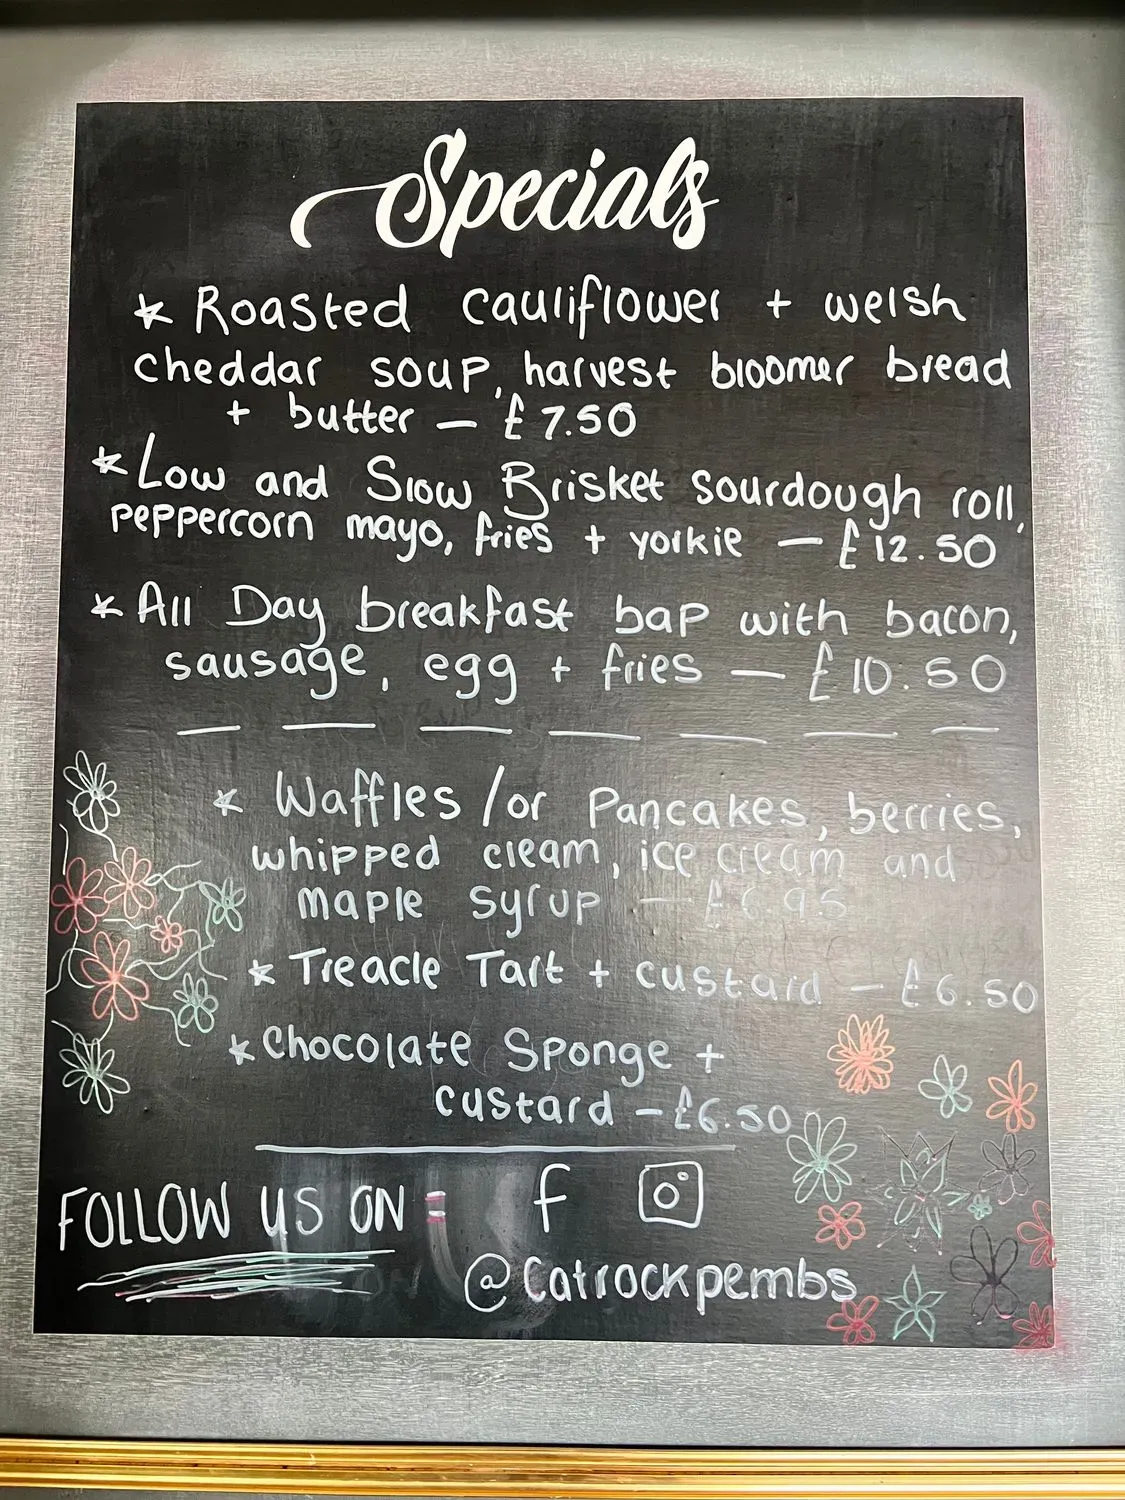 Specials
* Roasted cauliflower + welsh
cheddar soup, harvest bloomer bread
+ butter — £7.50
* Low and Slow Brisket sourdough roll,
peppercorn mayo, fries + yorkie — £12.50
* All Day breakfast bap with bacon,
sausage, egg + fries — £10.50
* Waffles /or Pancakes, berries,
whipped cream, ice cream and
maple syrup — £6.95
* Treacle Tart + custard — £6.50
* Chocolate Sponge +
custard — £6.50
FOLLOW US ON = f
@Catrockpembs